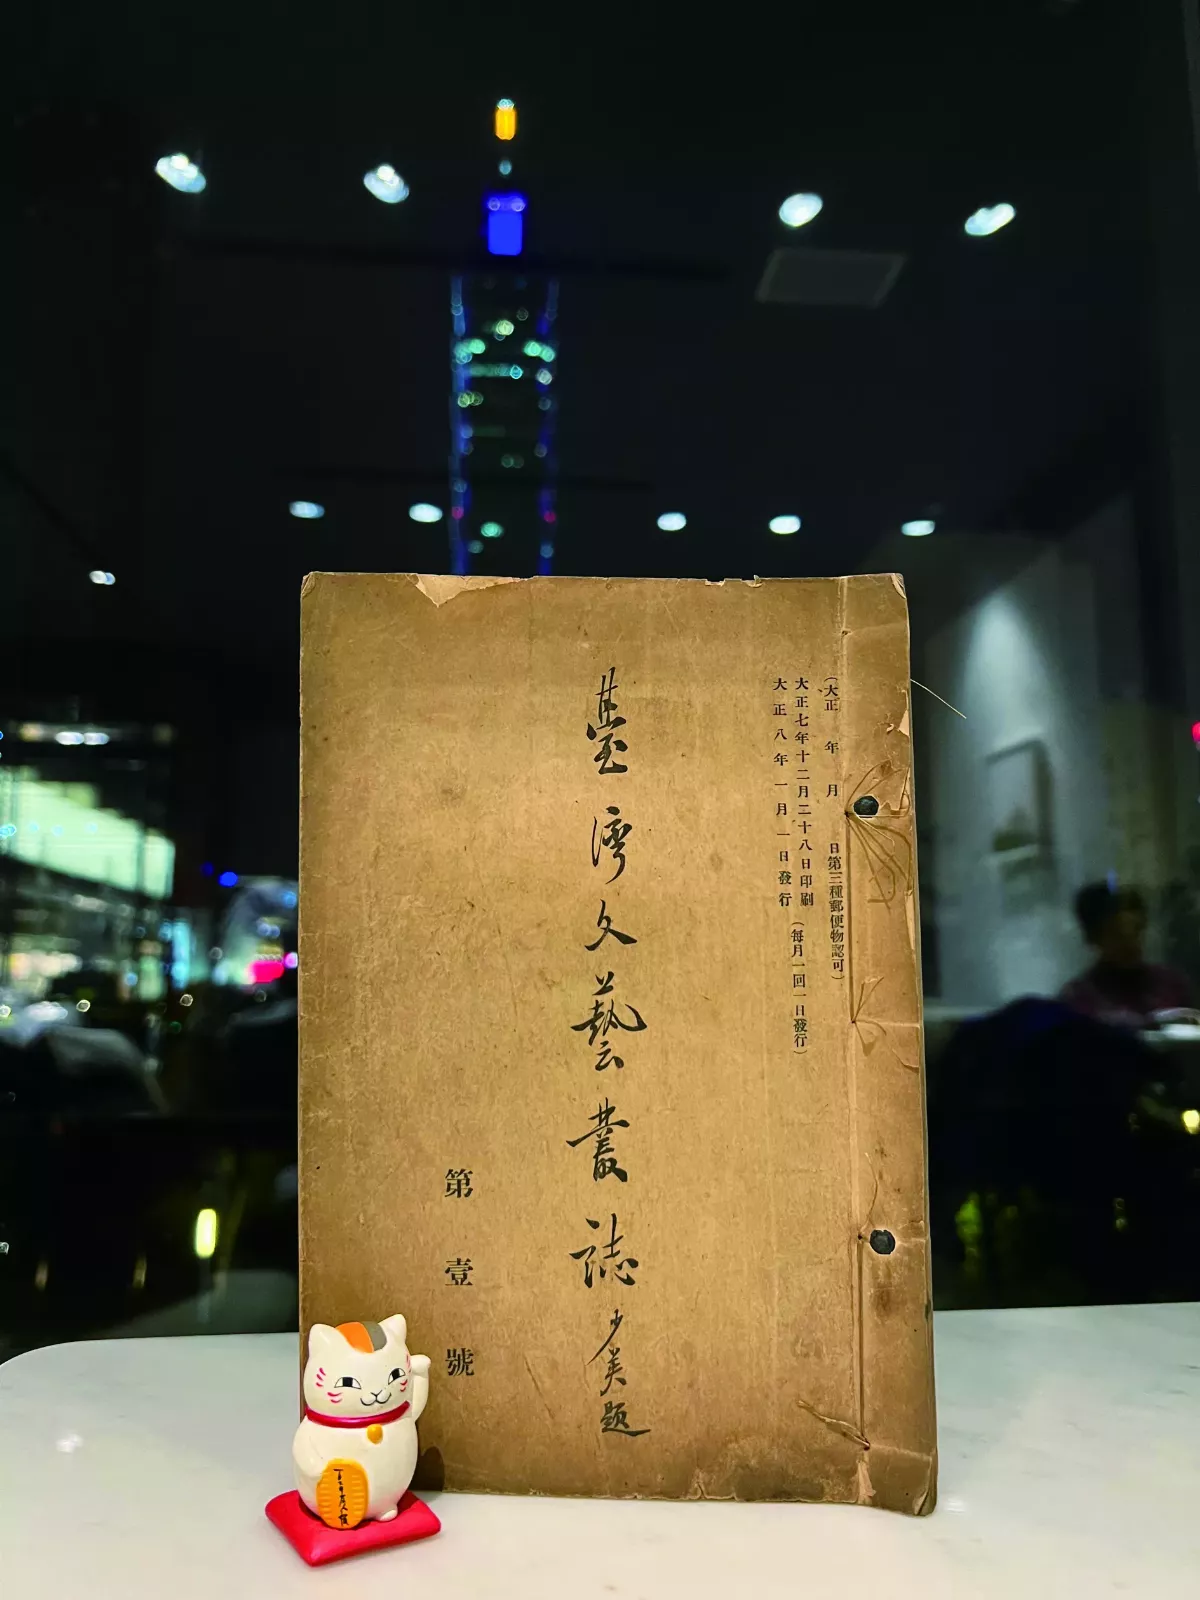 (大正 年 月 日第三種郵便物認可)
大正七年十二月二十八日印刷 (每月一回一日發行)
大正八年一月一日發行
臺灣文藝叢誌 少美題
第壹號